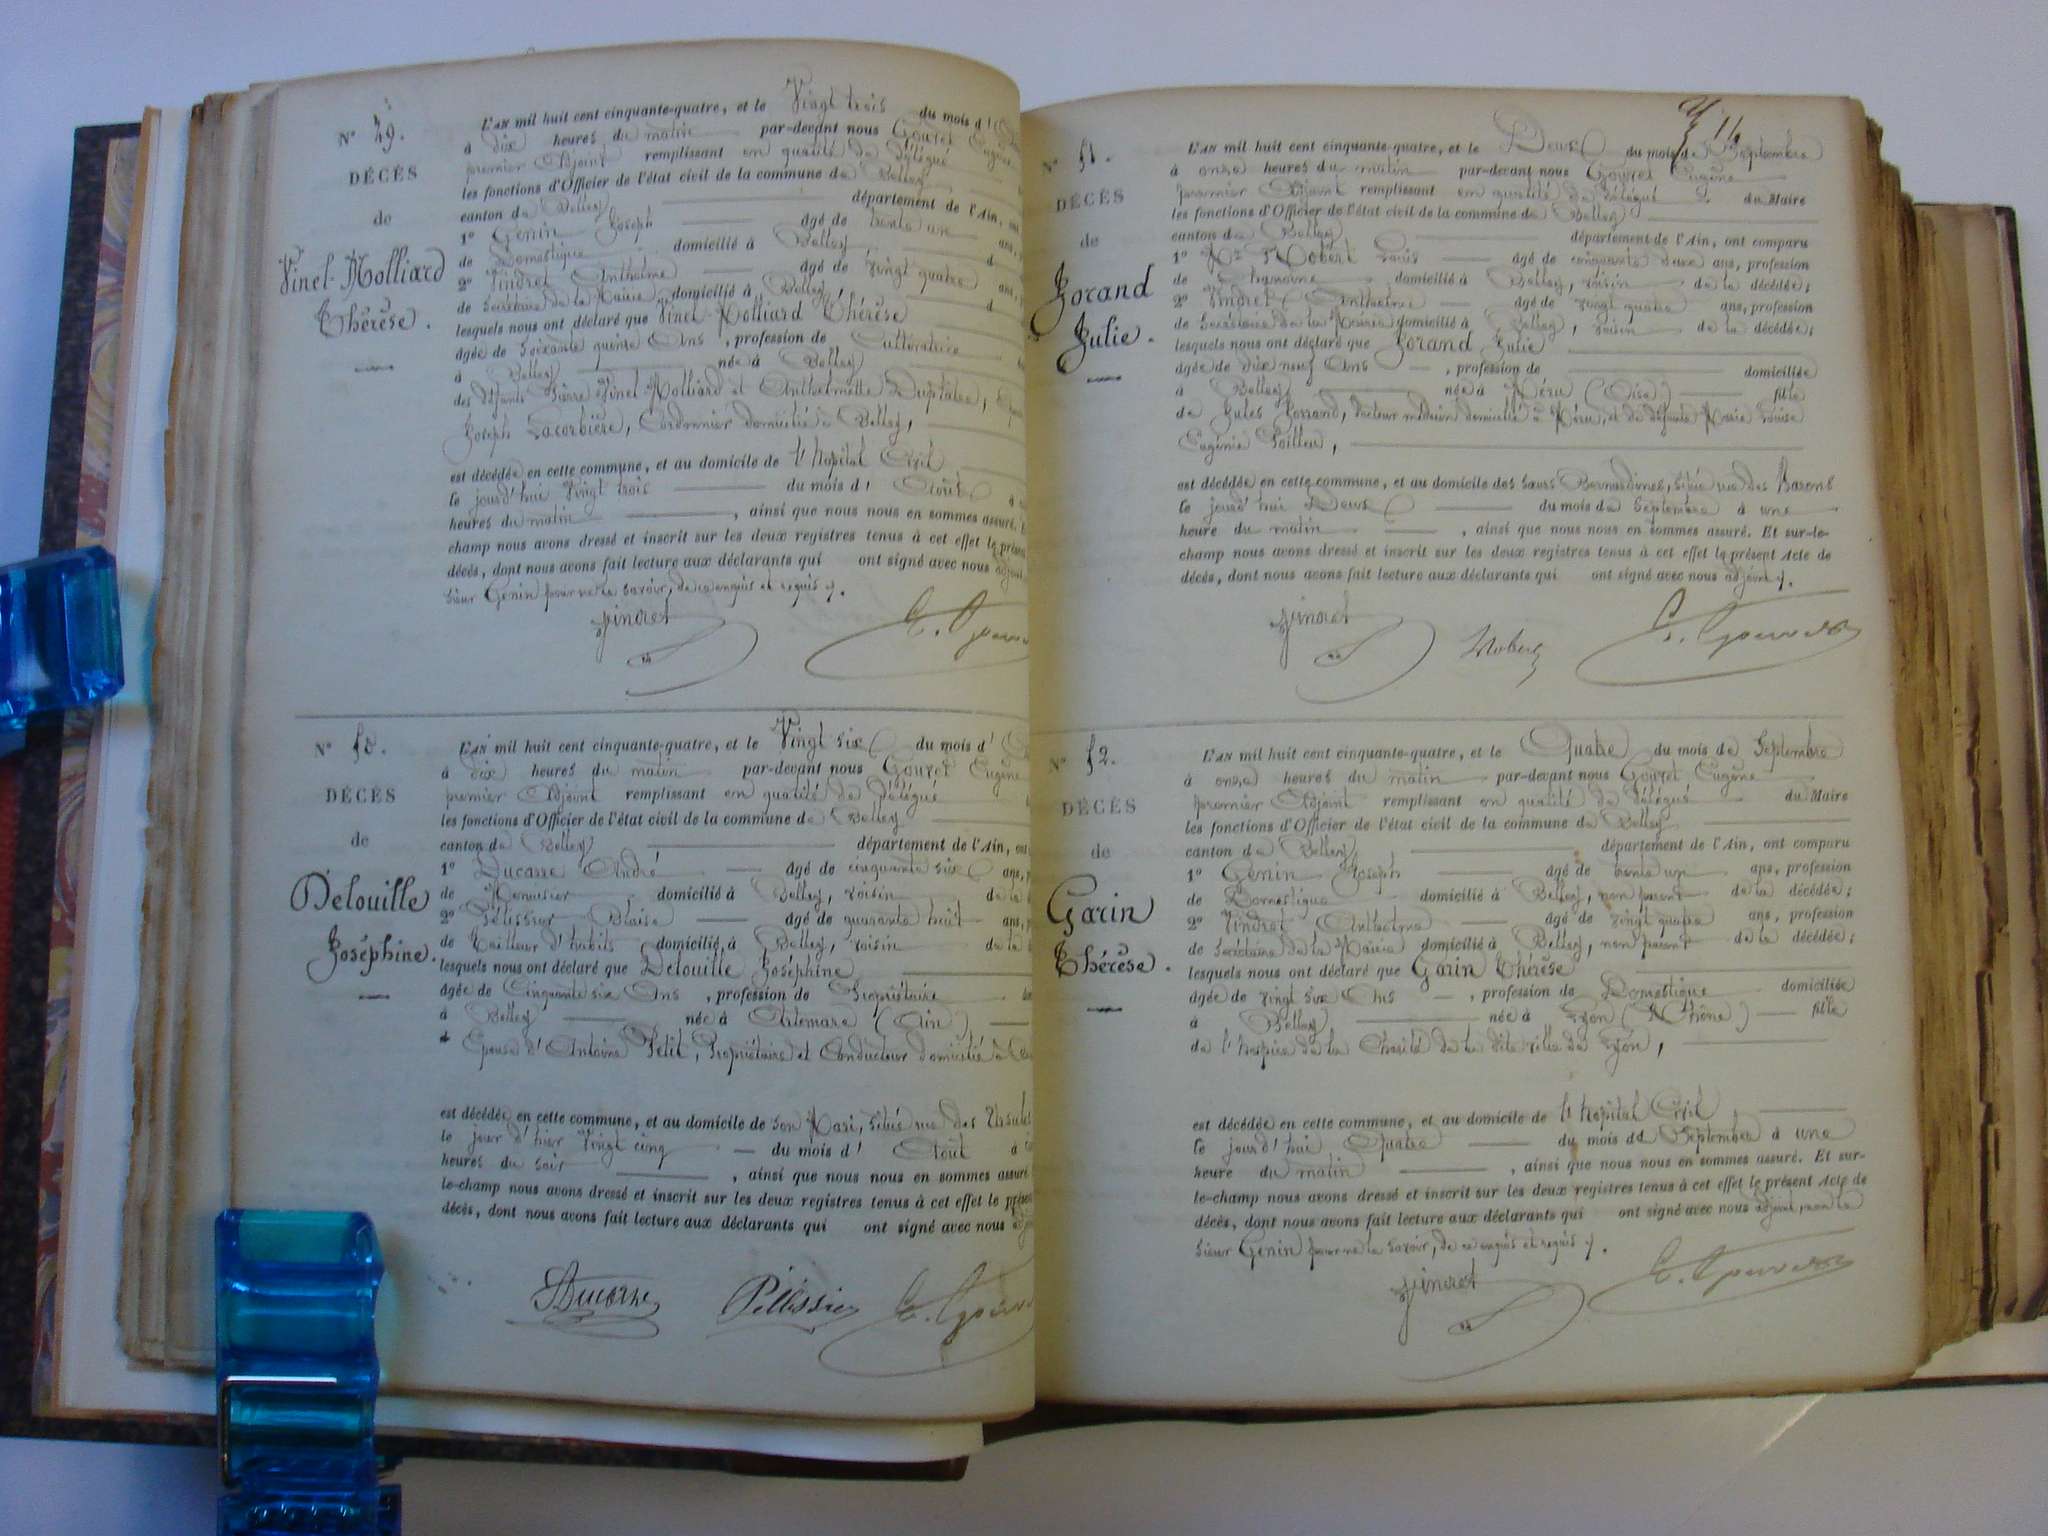 N° 49.
DÉCÈS
de
Vinel-Molliard
Thérèse.
L'AN mil huit cent cinquante-quatre, et le Vingt trois du mois d'
à dix heures du matin par-devant nous Gouvet Eugène
premier Adjoint remplissant en qualité de délégué
les fonctions d'Officier de l'état civil de la commune de Belley
canton de Belley département de l'Ain,
1° Genin Joseph agé de trente un ans,
de Domestique domicilié à Belley d
2° Vindret Anthelme agé de vingt quatre ans,
de Secrétaire de la Mairie domicilié à Belley d
lesquels nous ont déclaré que Vinel-Molliard Thérèse
agée de soixante quinze Ans, profession de Cultivatrice
à Belley née à Belley
des défunts Pierre Vinel-Molliard et Anthelmette Duplatre,
Joseph Lacorbière, Cordonnier domicilié à Belley,
est décédée en cette commune, et au domicile de l'hopital Civil
le jourd'hui Vingt trois du mois d'Août à
heures du matin, ainsi que nous nous en sommes assuré.
champ nous avons dressé et inscrit sur les deux registres tenus à cet effet le présent
décès, dont nous avons fait lecture aux déclarants qui ont signé avec nous adjoint
sieur Genin pour ne le savoir, de ce enquis et requis.
Vindret
E. Gouvet
N° 50.
DÉCÈS
de
Delouille
Joséphine.
L'AN mil huit cent cinquante-quatre, et le Vingt six du mois d'
à dix heures du matin par-devant nous Gouvet Eugène
premier Adjoint remplissant en qualité de délégué
les fonctions d'Officier de l'état civil de la commune de Belley
canton de Belley département de l'Ain, ont
1° Ducarre André agé de cinquante six ans,
de Menuisier domicilié à Belley, voisin de la
2° Pélissier Blaise agé de quarante huit ans,
de Tailleur d'habits domicilié à Belley, voisin de la
lesquels nous ont déclaré que Delouille Joséphine
agée de Cinquante six Ans, profession de Propriétaire
à Belley née à Artemare (Ain)
Epouse d'Antoine Petit, Propriétaire et Conducteur domicilié à
est décédée en cette commune, et au domicile de son Mari, situé rue des
le jour d'hier Vingt cinq du mois d'Août à
heures du soir, ainsi que nous nous en sommes assuré
le-champ nous avons dressé et inscrit sur les deux registres tenus à cet effet le présent
décès, dont nous avons fait lecture aux déclarants qui ont signé avec nous
Ducarre
Pélissier
E. Gouvet
N° 51.
DÉCÈS
de
Jorand
Julie.
L'AN mil huit cent cinquante-quatre, et le Deux du mois de Septembre
à onze heures du matin par-devant nous Gouvet Eugène
premier Adjoint remplissant en qualité de délégué du Maire
les fonctions d'Officier de l'état civil de la commune de Belley
canton de Belley département de l'Ain, ont comparu
1° Mr Robert Louis agé de cinquante deux ans, profession
de Chanoine domicilié à Belley, voisin de la décédée;
2° Vindret Anthelme agé de vingt quatre ans, profession
de Secrétaire de la Mairie domicilié à Belley, voisin de la décédée;
lesquels nous ont déclaré que Jorand Julie
agée de dix neuf Ans, profession de domiciliée
à Belley née à Méru (Oise) fille
de Jules Jorand, docteur médecin domicilié à Méru, et de défunte Marie Louise
Eugénie
est décédée en cette commune, et au domicile des Sœurs Bernardines, situé rue des Barons
le jourd'hui Deux du mois de Septembre à une
heure du matin, ainsi que nous nous en sommes assuré. Et sur-le-
champ nous avons dressé et inscrit sur les deux registres tenus à cet effet le présent Acte de
décès, dont nous avons fait lecture aux déclarants qui ont signé avec nous adjoint.
Vindret
Robert
E. Gouvet
N° 52.
DÉCÈS
de
Garin
Thérèse.
L'AN mil huit cent cinquante-quatre, et le Quatre du mois de Septembre
à onze heures du matin par-devant nous Gouvet Eugène
premier Adjoint remplissant en qualité de délégué du Maire
les fonctions d'Officier de l'état civil de la commune de Belley
canton de Belley département de l'Ain, ont comparu
1° Genin Joseph agé de trente un ans, profession
de Domestique domicilié à Belley, non parent de la décédée;
2° Vindret Anthelme agé de vingt quatre ans, profession
de Secrétaire de la Mairie domicilié à Belley, non parent de la décédée;
lesquels nous ont déclaré que Garin Thérèse
agée de vingt six Ans, profession de Domestique domiciliée
à Belley née à Lyon (Rhône) fille
de l'hospice de la Charité de la dite ville de Lyon,
est décédée en cette commune, et au domicile de l'hopital Civil
le jourd'hui Quatre du mois de Septembre à une
heure du matin, ainsi que nous nous en sommes assuré. Et sur-
le-champ nous avons dressé et inscrit sur les deux registres tenus à cet effet le présent Acte de
décès, dont nous avons fait lecture aux déclarants qui ont signé avec nous adjoint, non le
sieur Genin pour ne le savoir, de ce enquis et requis.
Vindret
E. Gouvet